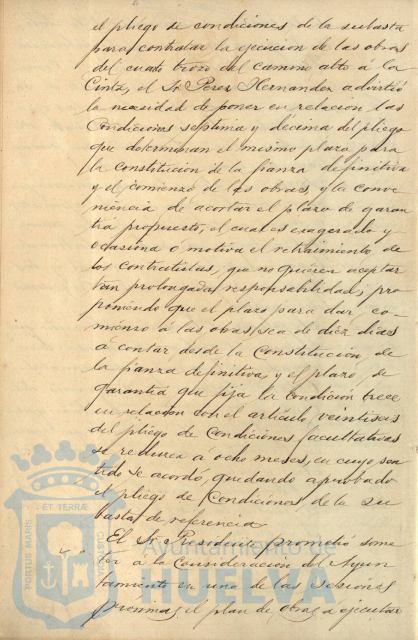 el pliego de condiciones de la subasta
para contratar la ejecucion de las obras
del cuarto trozo del camino alto á la
Cinta, el Sr. Perez Hernandez advirtió
la necesidad de poner en relacion las
Condiciones septima y decima del pliego
que determinan el mismo plazo para
la constitucion de la fianza definitiva
y el comienzo de las obras, y la conve
niencia de acortar el plazo de garan
tía propuesto, el cual es exagerado y
ocasiona ó motiva el retraimiento de
los contratistas, que no quieren aceptar
tan prolongada responsabilidad, pro
poniendo que el plazo para dar co-
mienzo á las obras sea de diez dias
á contar desde la Constitucion de
la fianza definitiva, y el plazo de
garantía que fija la condición trece
en relacion con el artículo veintiseis
del pliego de Condiciones facultativas
se reduzca a ocho meses, en cuyo sen
tido se acordó, quedando aprobado
el pliego de Condiciones de la su
basta de referencia.
El Sr. Presidente prometió some
ter á la Consideracion del Ayun
tamiento en una de las sesiones
proximas, el plan de obras a ejecutar
PORTUS MARIS
ET TERRÆ
CUSTODIA
Ayuntamiento de
HUELVA